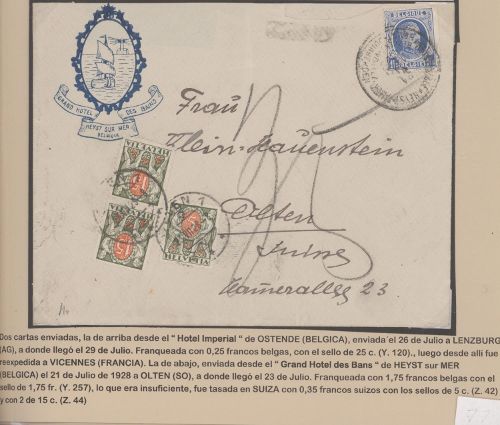 GRAND HOTEL DES BAINS
HEYST SUR MER
BELGIQUE
BELGIQUE
BELGIË
Frau
Klein-Hauenstein
Olten
Suisse
23
HELVETIA
15
HELVETIA
15
HELVETIA
Dos cartas enviadas, la de arriba desde el " Hotel Imperial " de OSTENDE (BELGICA), enviada el 26 de Julio a LENZBURG
(AG), a donde llegó el 29 de Julio. Franqueada con 0,25 francos belgas, con el sello de 25 c. (Y. 120)., luego desde alli fue
reexpedida a VICENNES (FRANCIA). La de abajo, enviada desde el " Grand Hotel des Bans " de HEYST sur MER
(BELGICA) el 21 de Julio de 1928 a OLTEN (SO), a donde llegó el 23 de Julio. Franqueada con 1,75 francos belgas con el
sello de 1,75 fr. (Y. 257), lo que era insuficiente, fue tasada en SUIZA con 0,35 francos suizos con los sellos de 5 c. (Z. 42)
y con 2 de 15 c. (Z. 44)